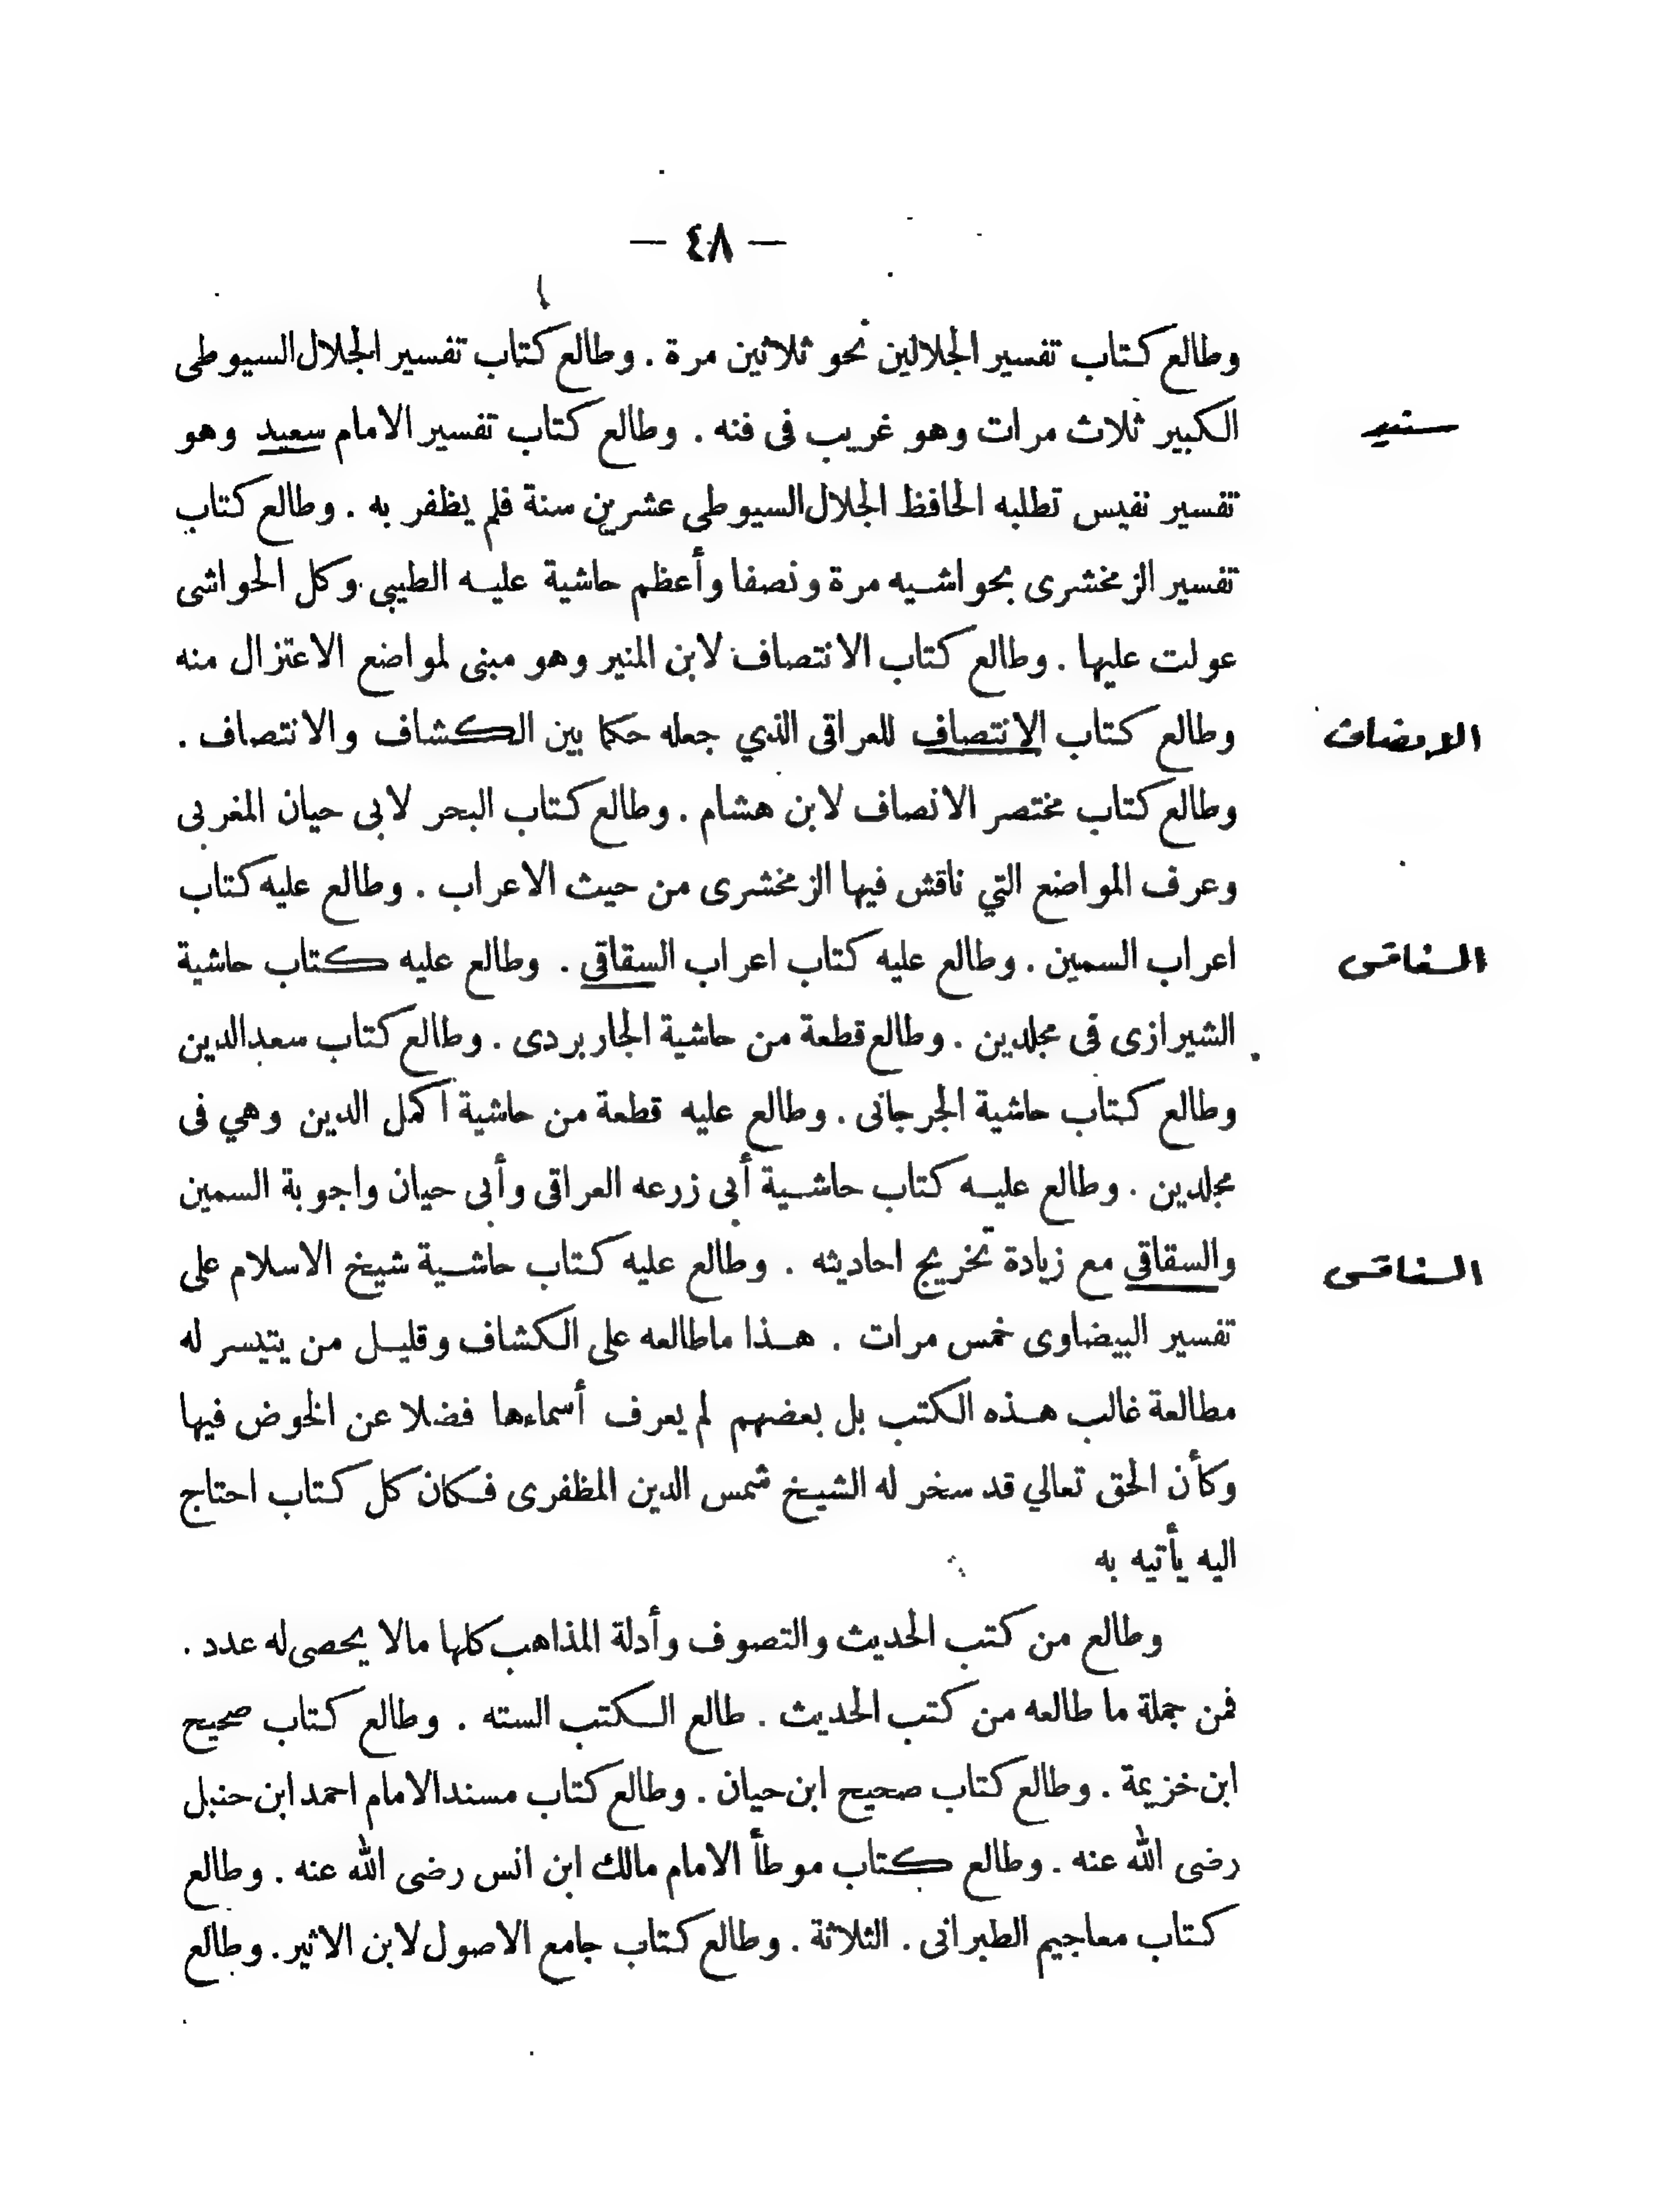 — ٤٨ —
وطالع كتاب تفسير الجلالين نحو ثلاثين مرة . وطالع كتاب تفسير الجلال السيوطى
الكبير ثلاث مرات وهو غريب فى فنه . وطالع كتاب تفسير الامام سعيد وهو
سنيد
تفسير نفيس تطلبه الحافظ الجلال السيوطى عشرين سنة فلم يظفر به . وطالع كتاب
تفسير الزمخشرى بحواشيه مرة ونصفا وأعظم حاشية عليه الطيبى وكل الحواشى
عولت عليها . وطالع كتاب الانتصاف لابن المنير وهو مبنى لمواضع الاعتزال منه
وطالع كتاب الانتصاف للعراقى الذي جعله حكما بين الكشاف والانتصاف .
الانصاف
وطالع كتاب مختصر الانصاف لابن هشام . وطالع كتاب البحر لابى حيان المغربى
وعرف المواضع التي ناقش فيها الزمخشرى من حيث الاعراب . وطالع عليه كتاب
اعراب السمين . وطالع عليه كتاب اعراب السقاقى . وطالع عليه كتاب حاشية
السفاقسى
الشيرازى فى مجلدين . وطالع قطعة من حاشية الجاربردى . وطالع كتاب سعد الدين
وطالع كتاب حاشية الجرجانى . وطالع عليه قطعة من حاشية اكمل الدين وهي فى
مجلدين . وطالع عليه كتاب حاشية أبى زرعه العراقى وأبى حيان واجوبة السمين
والسقاقى مع زيادة تخريج احاديثه . وطالع عليه كتاب حاشية شيخ الاسلام على
السفاقسى
تفسير البيضاوى خمس مرات . هذا ماطالعه على الكشاف وقليل من يتيسر له
مطالعة غالب هذه الكتب بل بعضهم لم يعرف أسماءها فضلا عن الخوض فيها
وكأن الحق تعالي قد سخر له الشيخ شمس الدين المظفرى فكان كل كتاب احتاج
اليه يأتيه به
وطالع من كتب الحديث والتصوف وأدلة المذاهب كلها مالا يحصى له عدد .
فمن جملة ما طالعه من كتب الحديث . طالع الكتب السته . وطالع كتاب صحيح
ابن خزيمة . وطالع كتاب صحيح ابن حيان . وطالع كتاب مسند الامام احمد ابن حنبل
رضى الله عنه . وطالع كتاب موطأ الامام مالك ابن انس رضى الله عنه . وطالع
كتاب معاجيم الطبرانى . الثلاثة . وطالع كتاب جامع الاصول لابن الاثير . وطالع